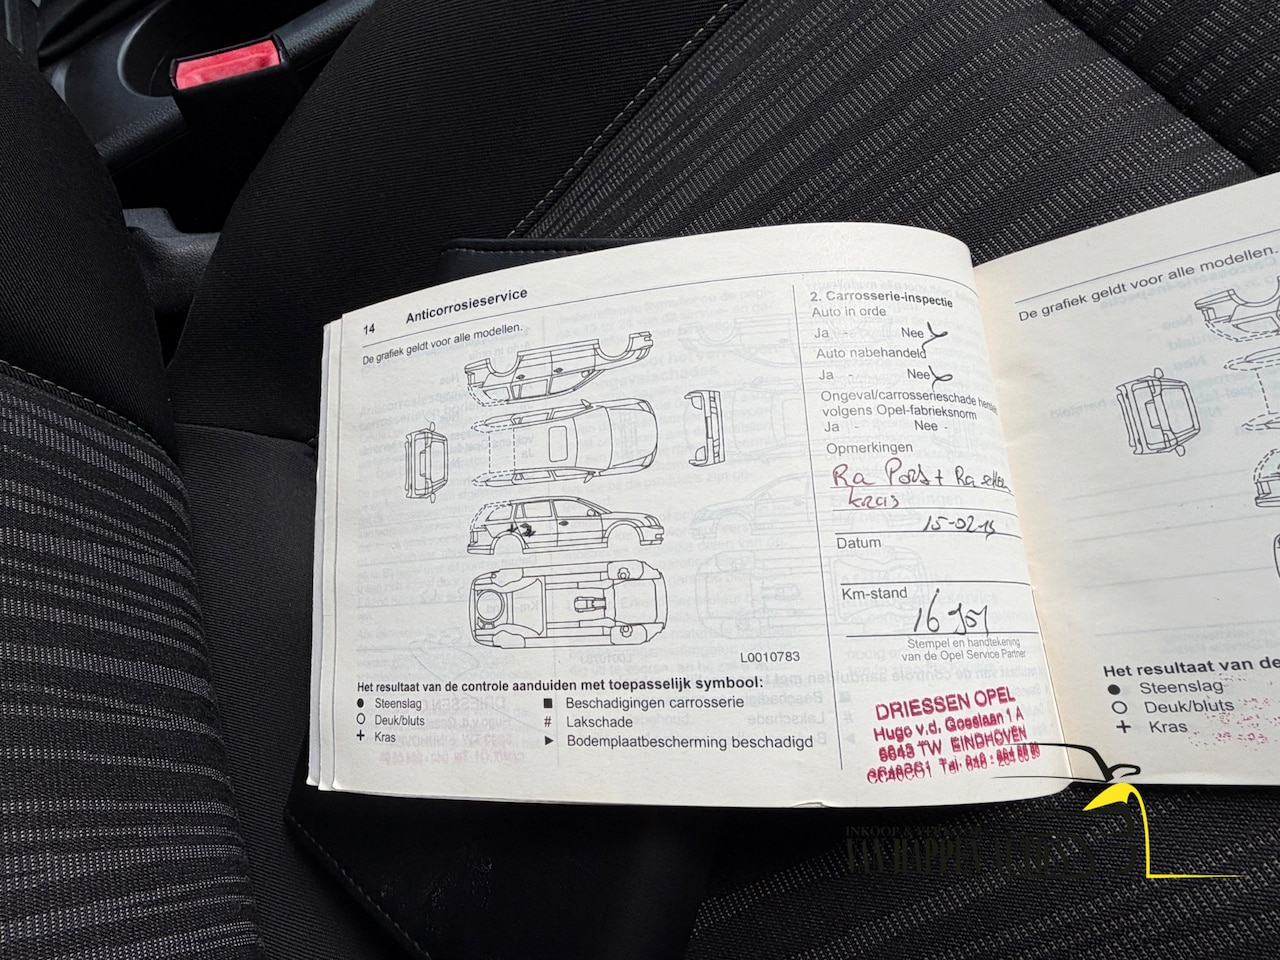 14 Anticorrosieservice
De grafiek geldt voor alle modellen.
L0010783
Het resultaat van de controle aanduiden met toepasselijk symbool:
● Steenslag
○ Deuk/bluts
+ Kras
■ Beschadigingen carrosserie
# Lakschade
► Bodemplaatbescherming beschadigd
2. Carrosserie-inspectie
Auto in orde
Ja - Nee
Auto nabehandeld
Ja - Nee
Ongeval/carrosserieschade
volgens Opel-fabrieksnorm
Ja - Nee -
Opmerkingen
Ra
kras
Datum
Km-stand
Stempel en handtekening
van de Opel Service Partner
DRIESSEN OPEL
Hugo v.d. Goeslaan 1 A
TW EINDHOVEN
De grafiek geldt voor alle modellen.
Het resultaat van de
● Steenslag
○ Deuk/bluts
+ Kras